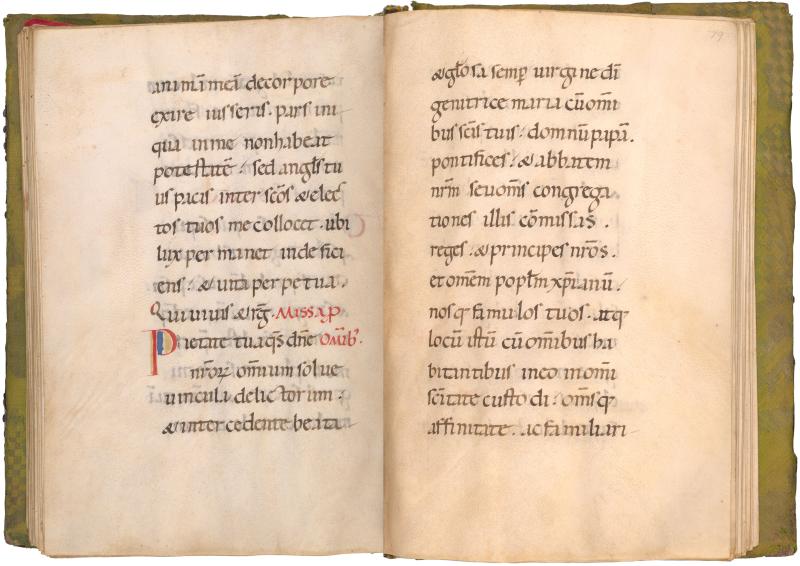 animā meā decorpore
exire iusseris. pars ini
qua in me non habeat
potestatē. sed angls tu
us pacis inter scōs & elec
tos tuos me collocet. ubi
lux permanet indefici
ens. & uita perpetua.
Qui uiuis & rēg. Missa p
Pietate tua qs dn̄e om̄ib'.
nr̄oꝝ omnium solue
uincula delictorum.
& intercedente beata
79
& glōsa semꝑ uirgine dī
genitrice maria cū om̄i
bus scīs tuis. domnū papā.
pontifices. & abbatem
nr̄m seu om̄s congrega
tiones illis cōmissas.
reges. & principes nr̄os.
et om̄em poplm̄ xp̄ianū.
nosq; famulos tuos. atq;
locū istū cū om̄ibus ha
bitantibus in eo in om̄i
scītate custodi. om̄sq;
affinitate. ac familiari